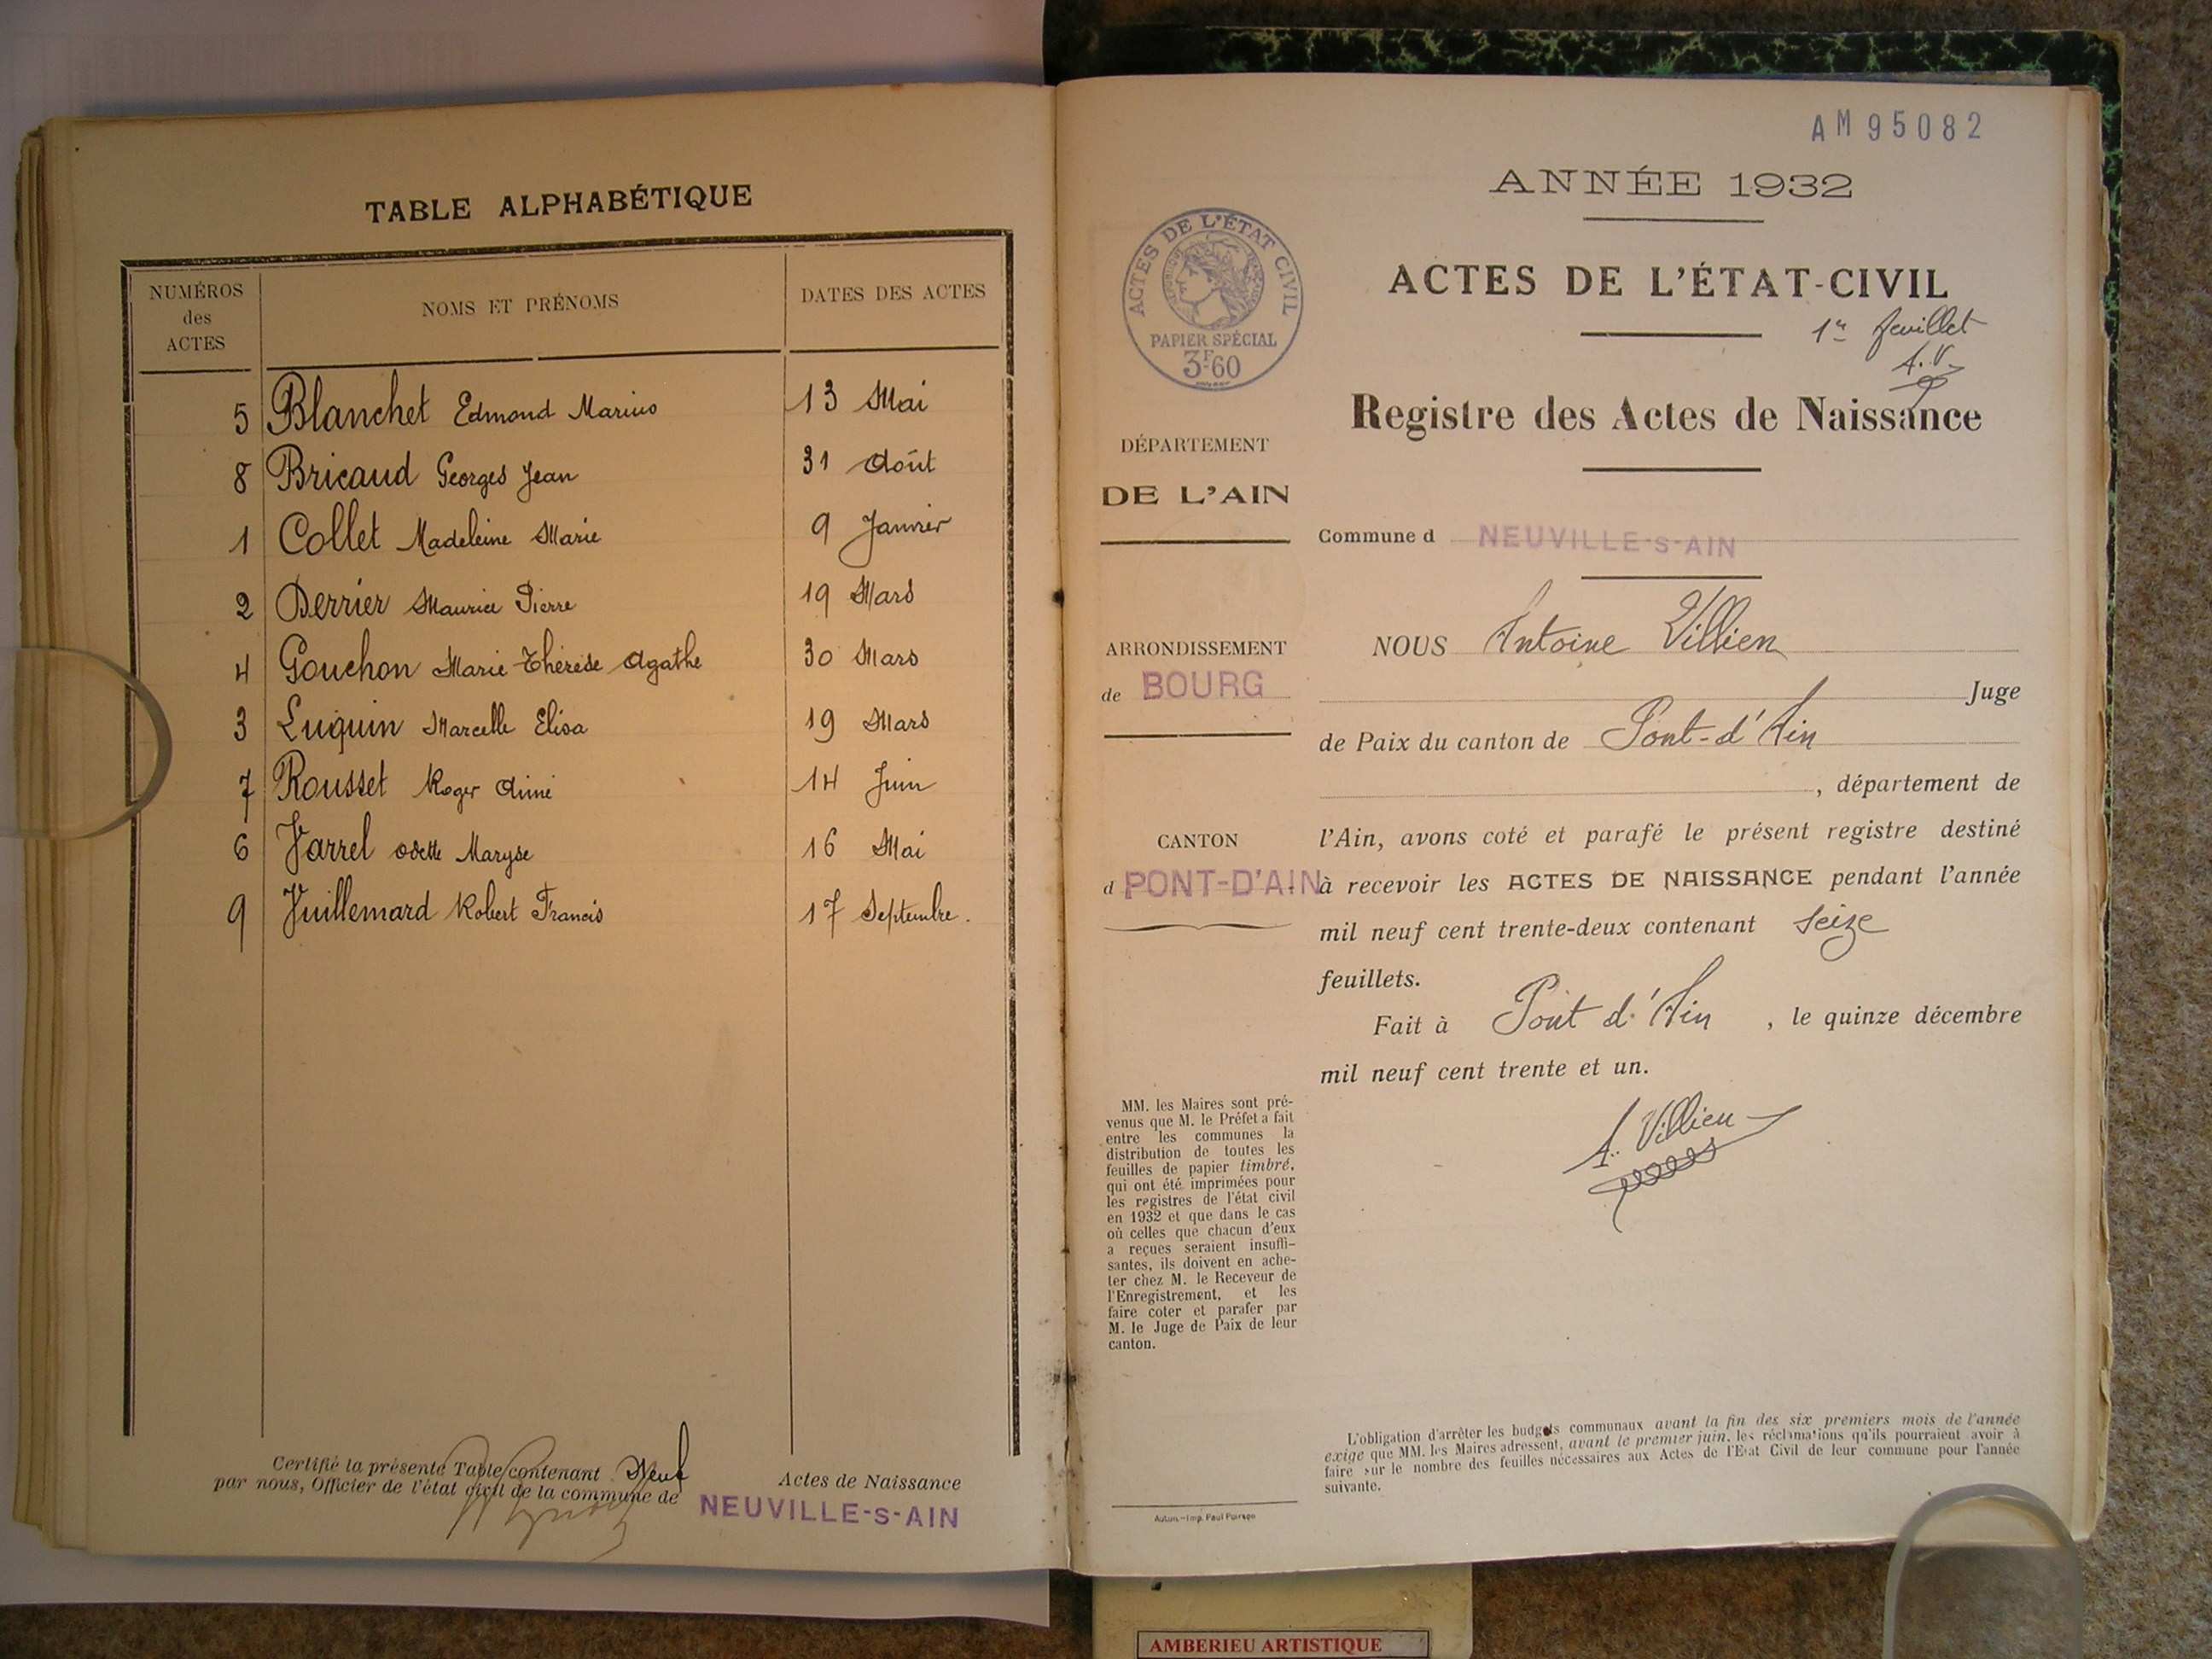 TABLE ALPHABÉTIQUE
NUMÉROS
des
ACTES
NOMS ET PRÉNOMS
DATES DES ACTES
5 Blanchet Edmond Marius 13 Mai
8 Bricaud Georges Jean 31 Août
1 Collet Madeleine Marie 9 Janvier
2 Derrier Maurice Pierre 19 Mars
4 Gouchon Marie Thérèse Agathe 30 Mars
3 Luquin Marcelle Elisa 19 Mars
7 Rousset Roger Aimé 14 Juin
6 Varrel Odette Maryse 16 Mai
9 Vuillemard Robert Francis 17 Septembre.
Certifié la présente Table contenant Neuf Actes de Naissance
par nous, Officier de l'état civil de la commune de NEUVILLE-S-AIN
AM95082
ANNÉE 1932
ACTES DE L'ÉTAT-CIVIL
1er feuillet
A.V.
Registre des Actes de Naissance
ACTES DE L'ÉTAT CIVIL
PAPIER SPÉCIAL
3F60
DÉPARTEMENT
DE L'AIN
ARRONDISSEMENT
de BOURG
CANTON
d PONT-D'AIN
MM. les Maires sont pré-
venus que M. le Préfet a fait
entre les communes la
distribution de toutes les
feuilles de papier timbré,
qui ont été imprimées pour
les registres de l'état civil
en 1932 et que dans le cas
où celles que chacun d'eux
a reçues seraient insuffi-
santes, ils doivent en ache-
ter chez M. le Receveur de
l'Enregistrement, et les
faire coter et parafer par
M. le Juge de Paix de leur
canton.
Autun.-Imp. Paul
Commune d NEUVILLE-S-AIN
NOUS Antoine Villien
Juge
de Paix du canton de Pont-d'Ain
, département de
l'Ain, avons coté et parafé le présent registre destiné
à recevoir les ACTES DE NAISSANCE pendant l'année
mil neuf cent trente-deux contenant seize
feuillets.
Fait à Pont d'Ain, le quinze décembre
mil neuf cent trente et un.
A. Villien
L'obligation d'arrêter les budgets communaux avant la fin des six premiers mois de l'année
exige que MM. les Maires adressent, avant le premier juin, les réclamations qu'ils pourraient avoir à
faire sur le nombre des feuilles nécessaires aux Actes de l'Etat Civil de leur commune pour l'année
suivante.
AMBERIEU ARTISTIQUE